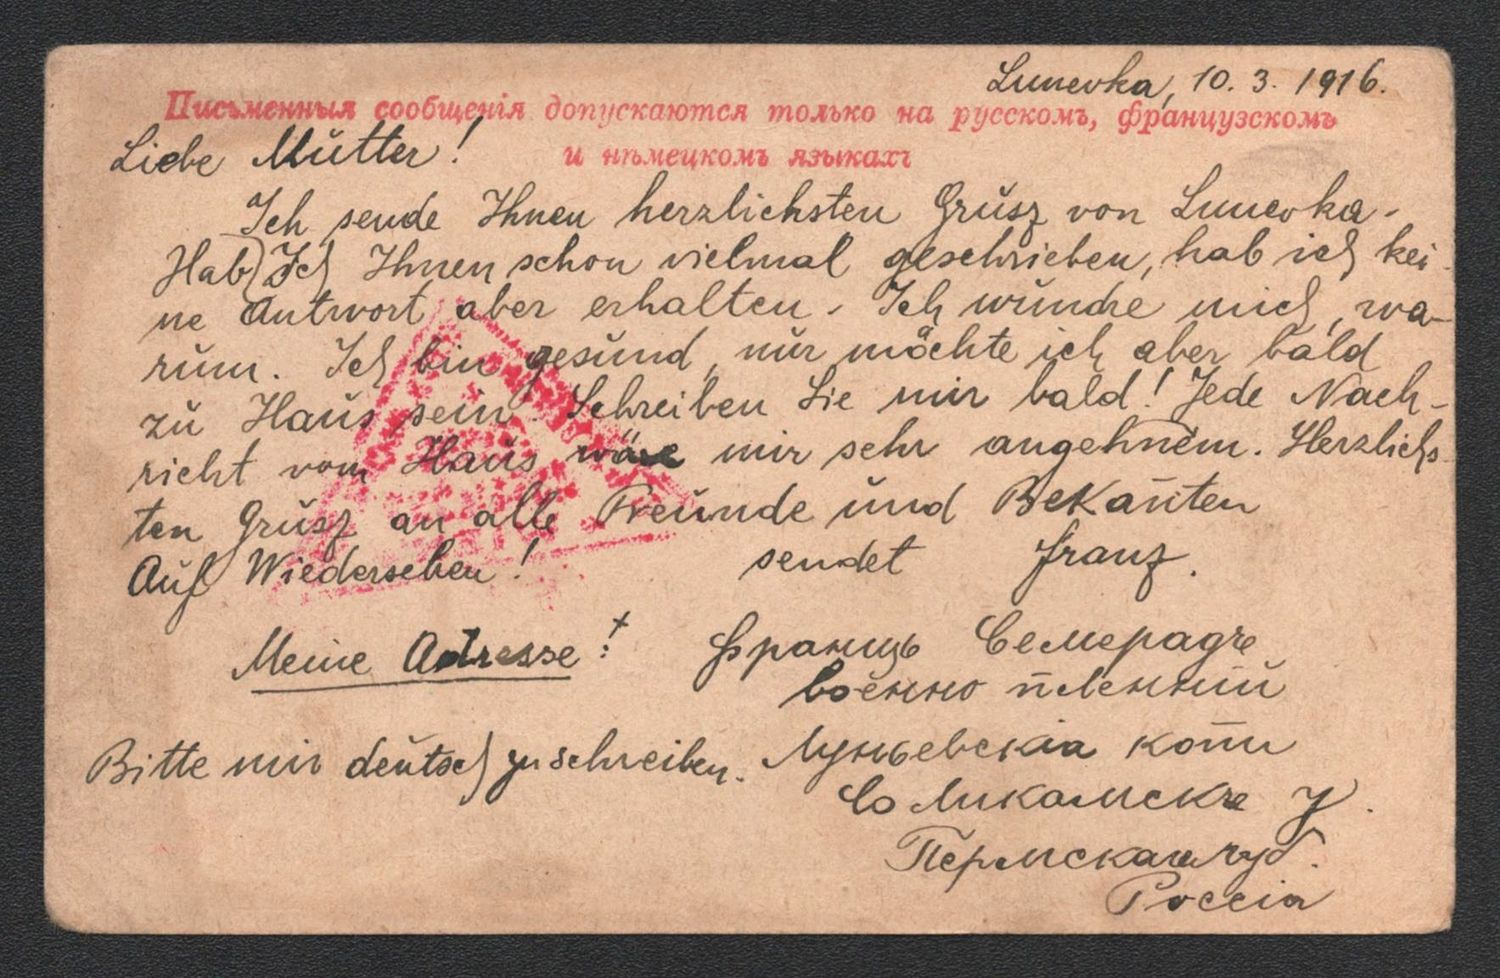 Lunevka, 10. 3. 1916.
Письменныя сообщенія допускаются только на русскомъ, французскомъ
и нѣмецкомъ языкахъ
Liebe Mutter!
Ich sende Ihnen herzlichsten Grusz von Lunevka.
Hab Ich Ihnen schon vielmal geschrieben, hab ich kei-
ne Antwort aber erhalten. Ich wundre mich, wa-
rum. Ich bin gesund, nur möchte ich aber bald
zu Haus sein. Schreiben Sie mir bald! Jede Nach-
richt vom Haus wäre mir sehr angehnem. Herzlichs-
ten Grusz an alle Freunde und Bekañten
Auf Wiedersehen! sendet Franz.
Meine Adresse! Францъ Семерадъ
военно пленний
Bitte mir deutsch zu schreiben. Луньевскія копи
Соликамскъ У.
Пермская губ.
Россія